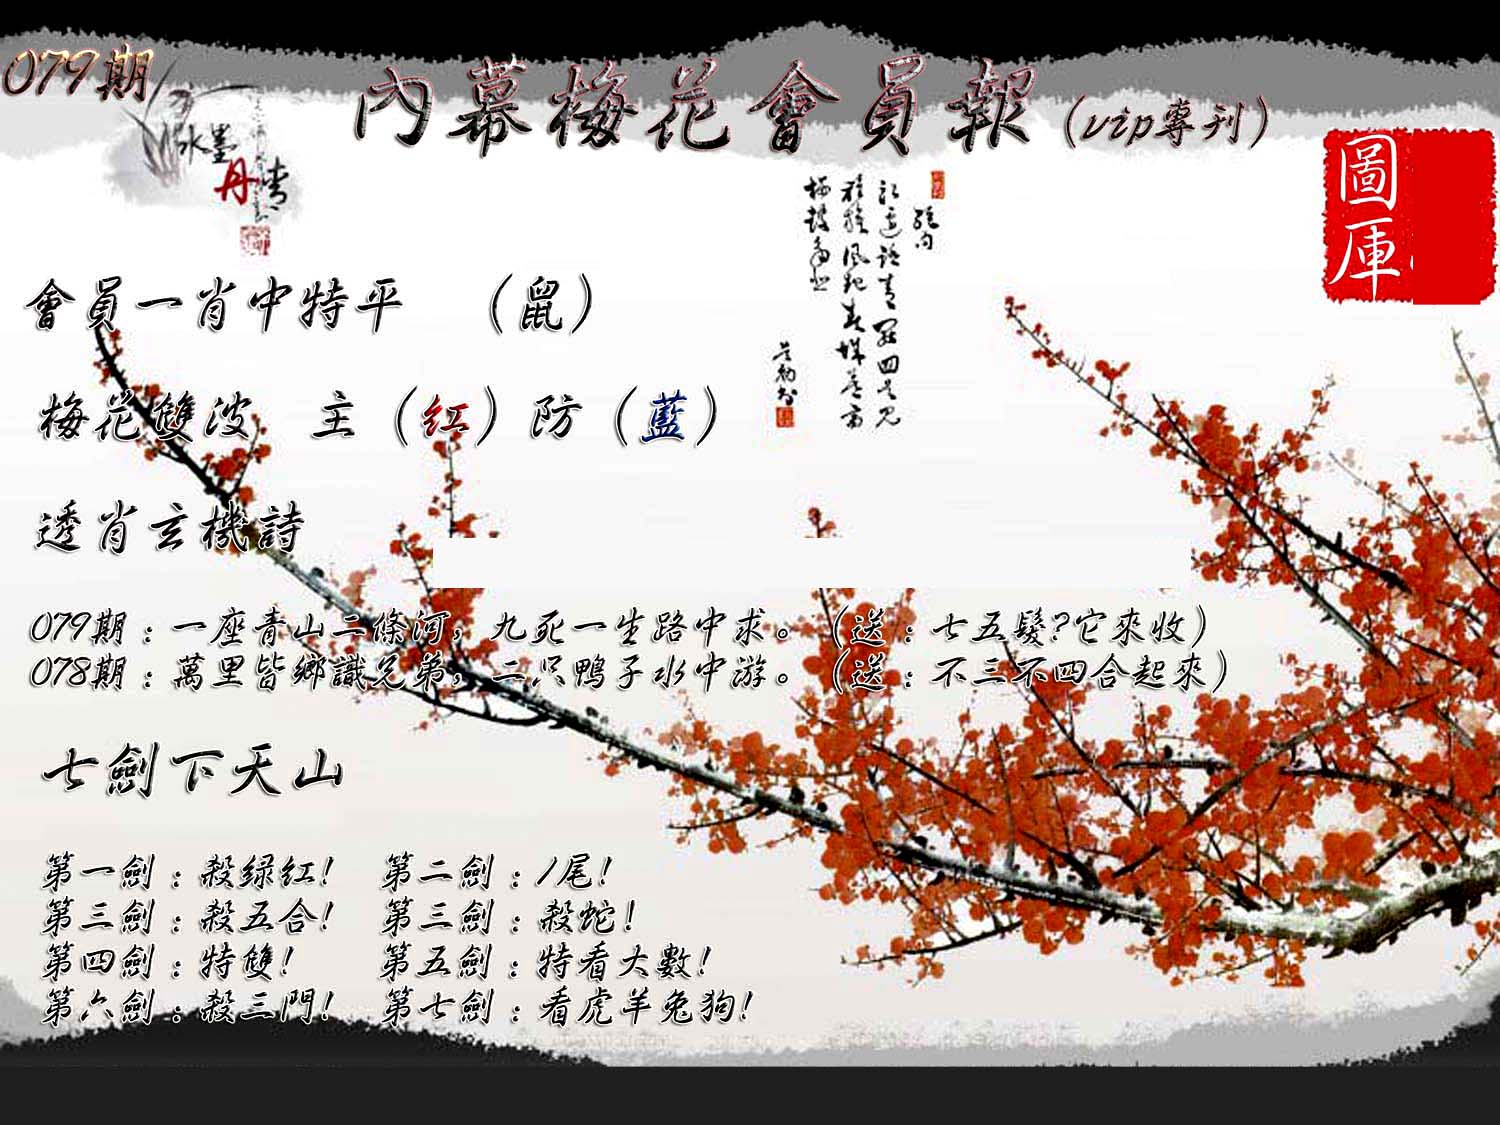 079期
內幕梅花會員報(vip專刊)
水墨
丹青
圖庫
會員一肖中特平 (鼠)
梅花雙波 主(紅)防(藍)
透肖玄機詩
079期:一座青山二條河,九死一生路中求。(送:七五髮?它來收)
078期:萬里皆鄉識兄弟,二只鴨子水中游。(送:不三不四合起來)
七劍下天山
第一劍:殺绿紅! 第二劍:/尾!
第三劍:殺五合! 第三劍:殺蛇!
第四劍:特雙! 第五劍:特看大數!
第六劍:殺三門! 第七劍:看虎羊兔狗!